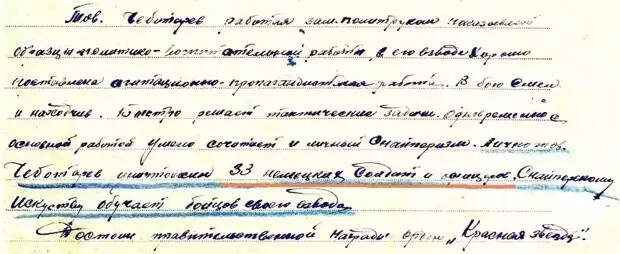 Тов. Чеботарев работая зам. политруком показывает
образцы политико-воспитательной работы, в его взводе хорошо
поставлена агитационно-пропагандистская работа. В бою смел
и находчив. Быстро решает тактические задачи. Одновременно с
основной работой умело сочитает и личный снайперизм. Лично тов.
Чеботарев уничтожил 33 немецких солдат и офицеров. Снайперскому
искуству обучает бойцов своего взвода.
Достоин правительственной награды орден „Красная звезда".